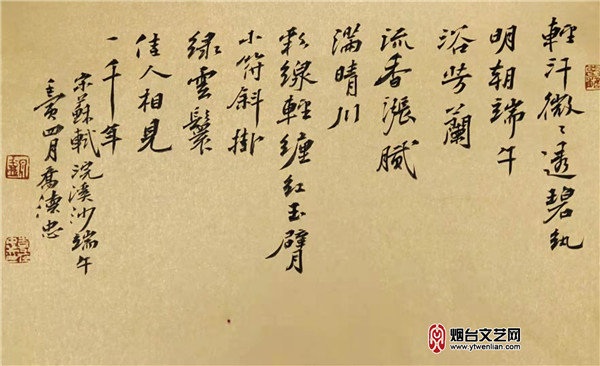 輕汗微〻透碧紈
明朝端午
浴芳蘭
流香漲膩
滿晴川
彩線輕纏紅玉臂
小符斜掛
綠雲鬟
佳人相見
一千年
宋蘇軾浣溪沙端午
壬寅四月喬忠
烟台文艺网
www.ytwenlian.com